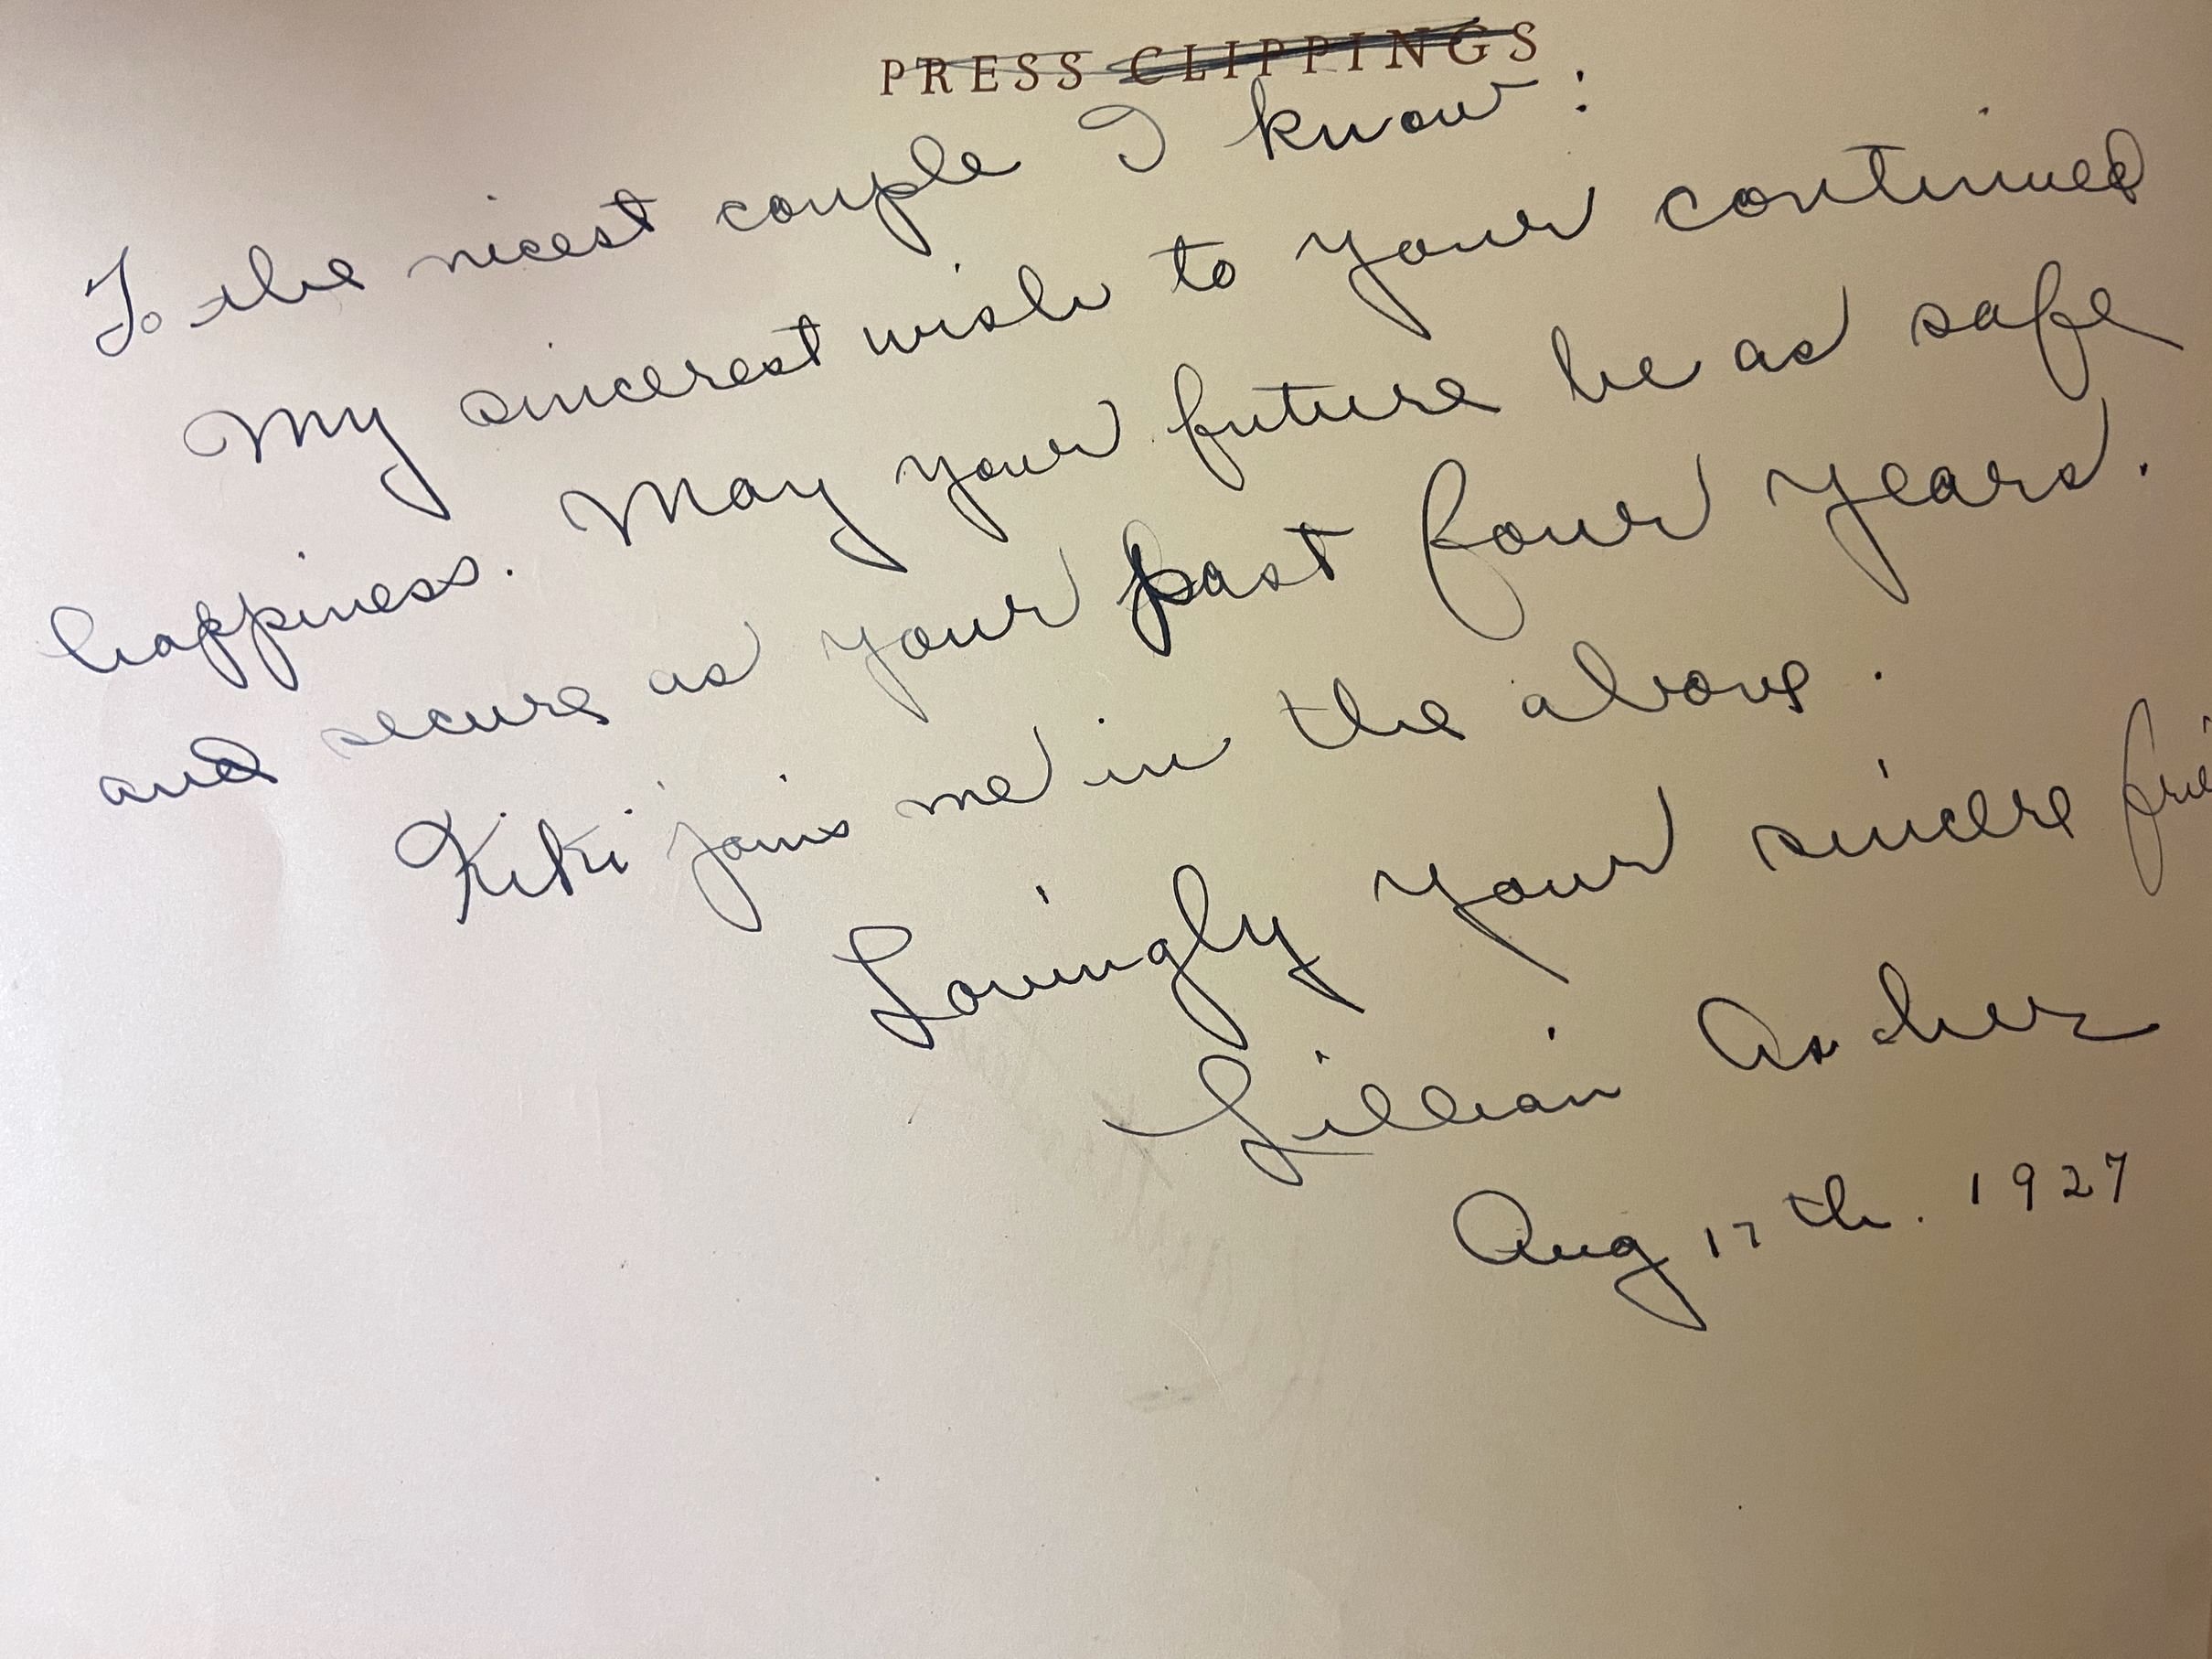 PRESS CLIPPINGS
To the nicest couple I know:
My sincerest wish to your continued
happiness. May your future be as safe
and secure as your past four years.
Kiki joins me in the above.
Lovingly your sincere
Lillian Ascher
Aug 17th. 1927